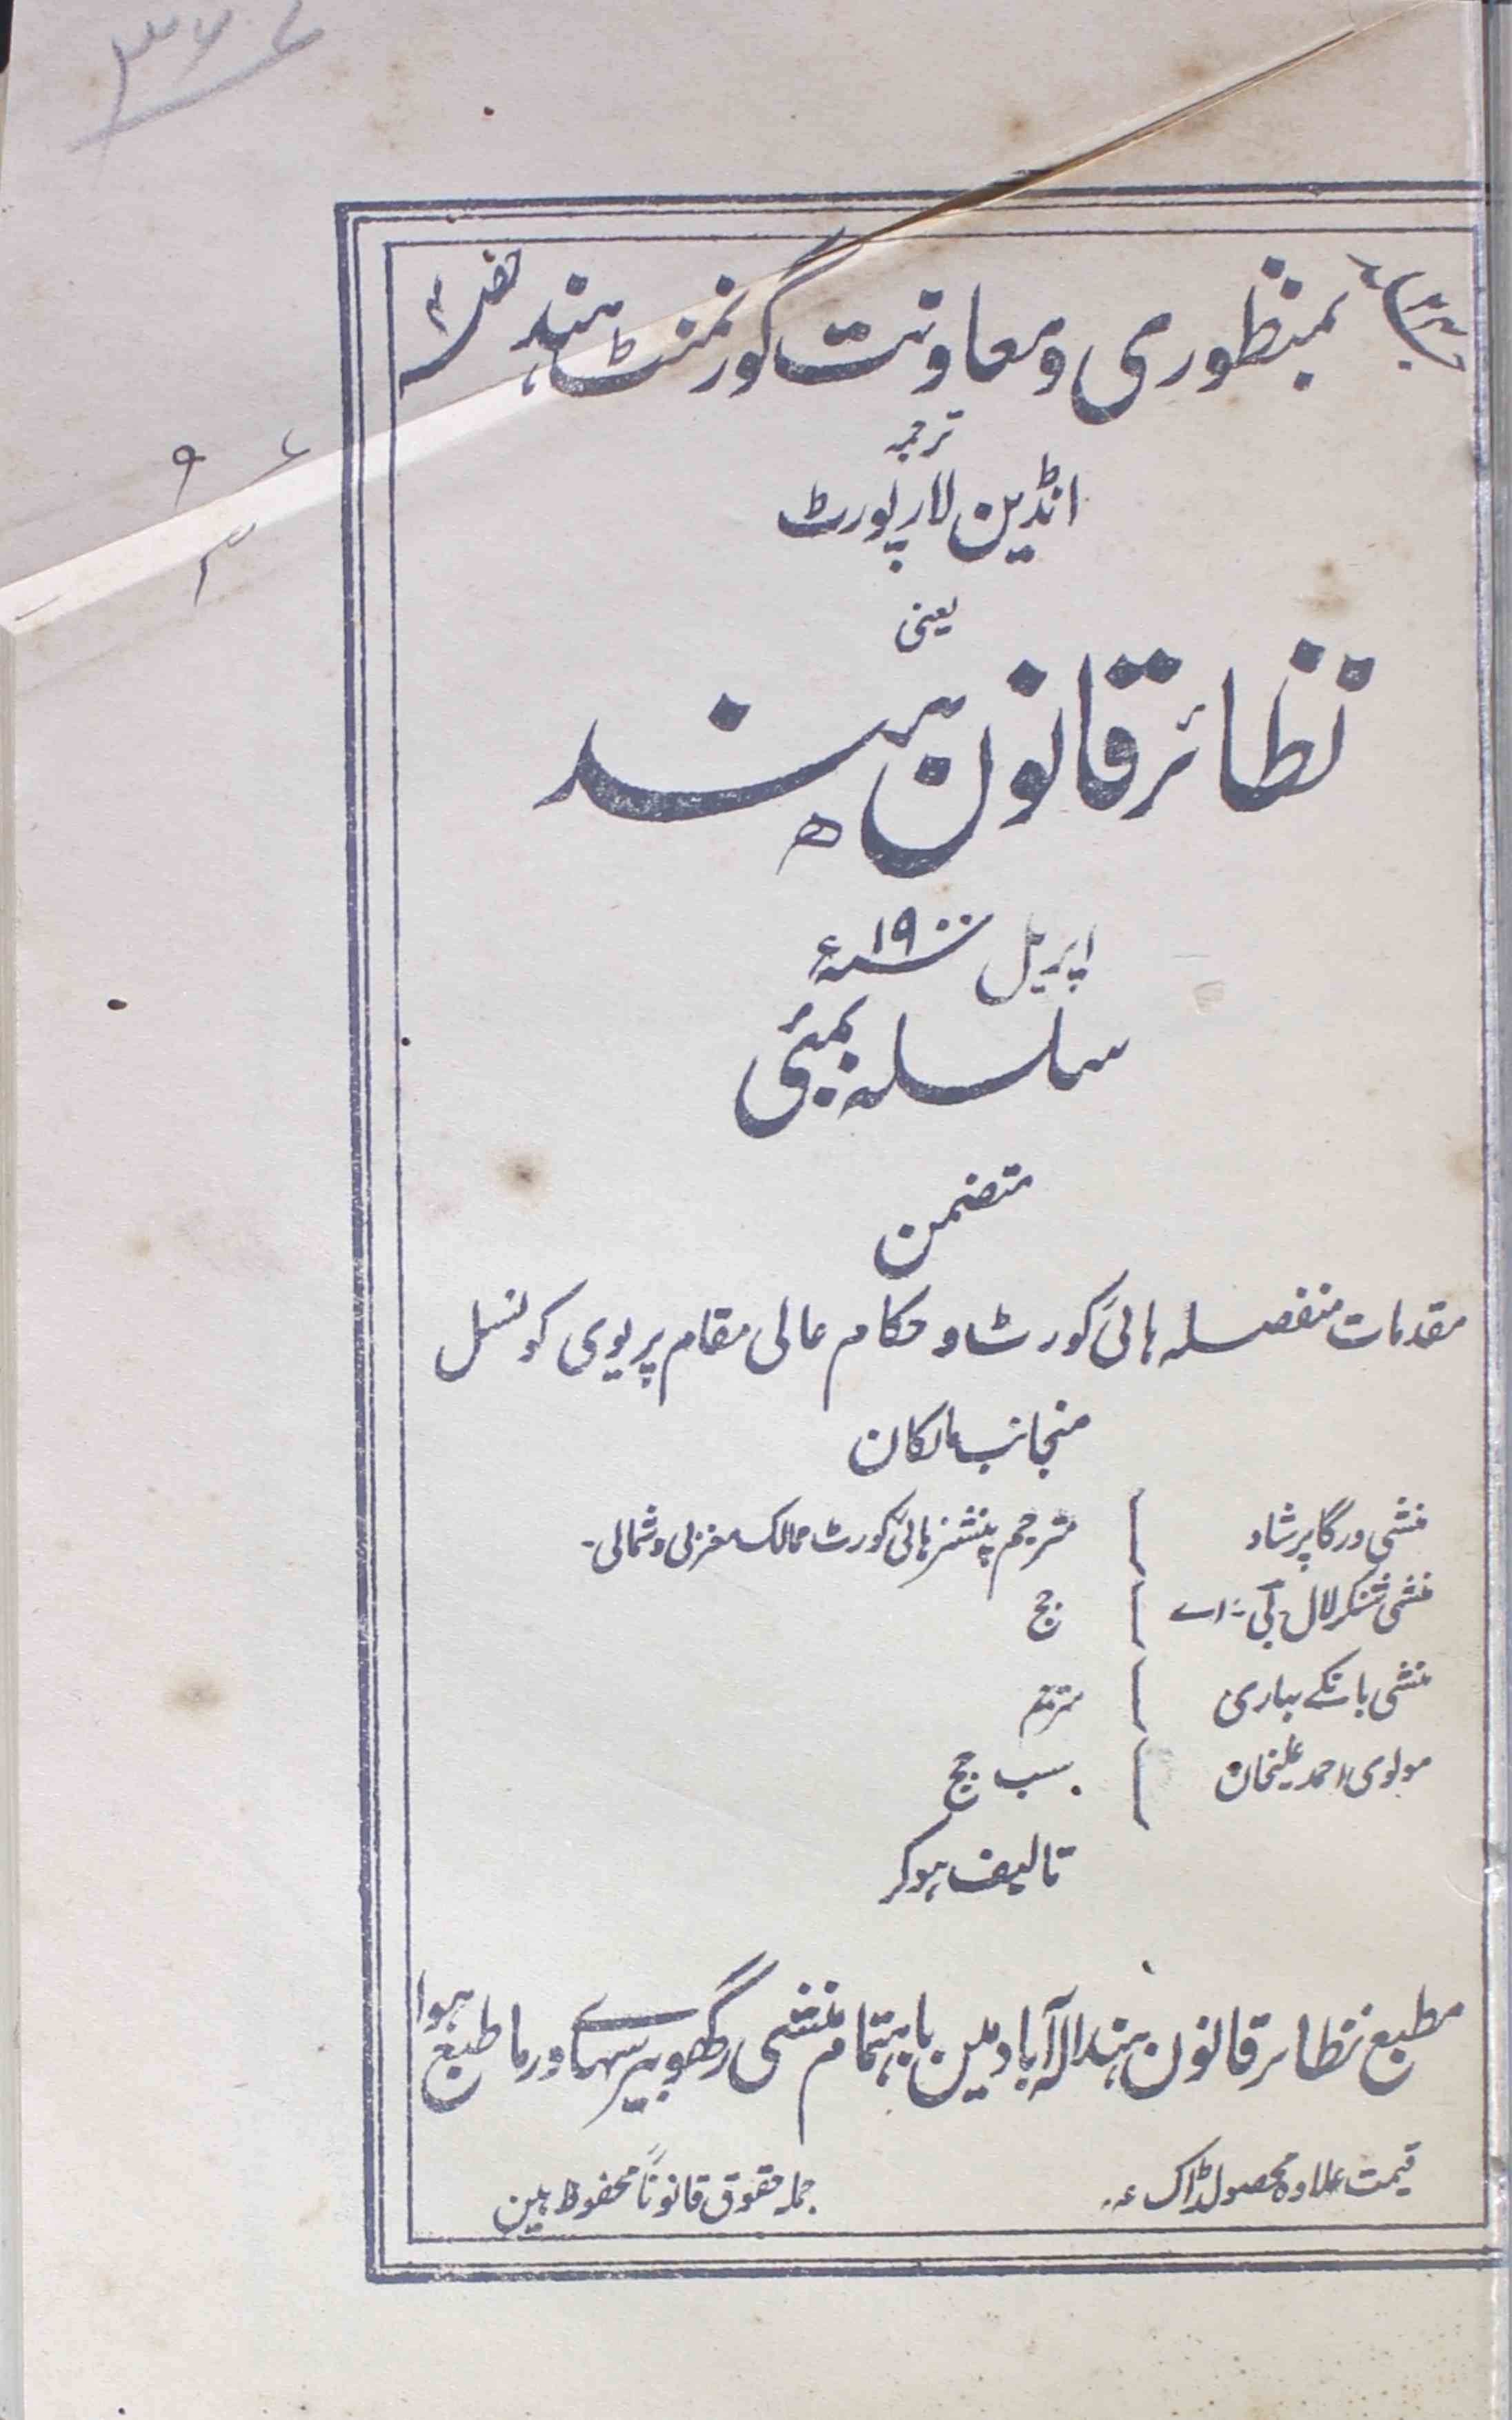 ۳۶۷
بمنظوری ومعاونت گورنمنٹ ہند
ترجمہ
انڈین لارپورٹ
یعنی
نظائر قانون ہند
اپریل ۱۹۰۰ء
سلسلہ بمبئی
متضمن
مقدمات منفصلہ ہائی کورٹ و حکام عالی مقام پریوی کونسل
منجانب مالکان
منشی درگا پرشاد مترجم پنشنر ہائی کورٹ ممالک مغربی و شمالی۔
منشی شنکر لال بی۔اے جج
منشی بانکے بہاری
مولوی احمد علیخان سب جج
تالیف ہوکر
مطبع نظائر قانون ہند الہ آباد مین باہتمام منشی رگھوبیر سہاے ورما طبع ہوا
قیمت علاوہ محصول ڈاک
جملہ حقوق قانوناً محفوظ ہین